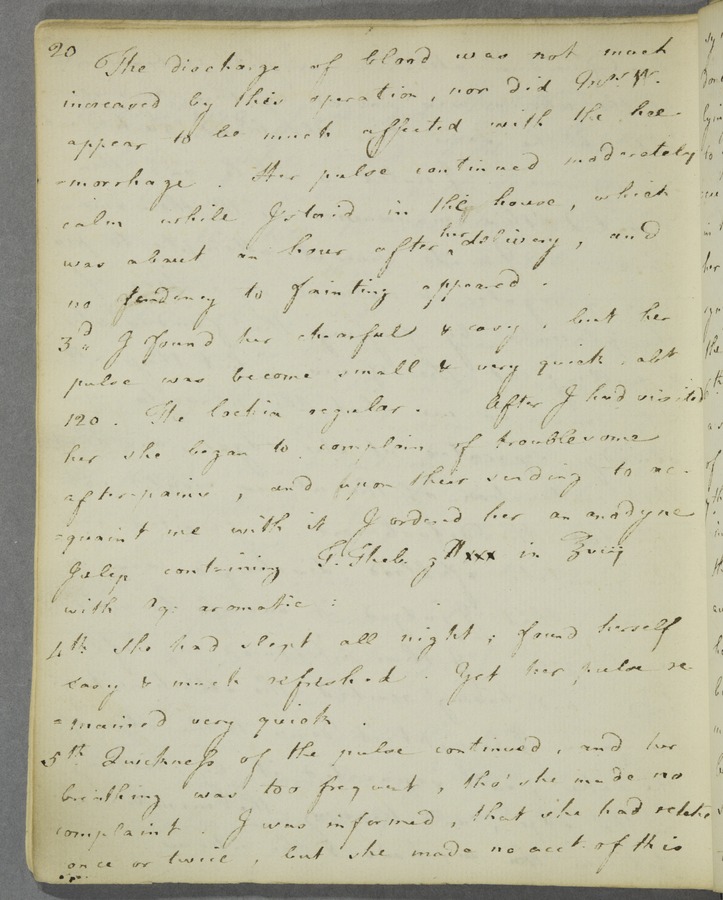 20
The discharge of blood was not much
increased by this operation, nor did Mrs. W.
appear to be much affected with the hœ-
=morrhage. Her pulse continued moderately
calm while I staid in the house, which
was about an hour after her delivery, and
no tendency to fainting appeared.
3d. I found her chearful & easy, but her
pulse was become small & very quick, abt
120. The lochia regular. After I had visited
her she began to complain of troublesome
after-pains, and upon their sending to ac-
=quaint me with it I ordered her an anodyne
Julep containing T. Theb. xxx in ℥viij
with aq: aromatic:
4th She had slept all night; found herself
easy & much refreshed. Yet her pulse re
=mained very quick.
5th Quickness of the pulse continued, and her
breathing was too frequent, tho' she made no
complaint. I was informed, that she had
once or twice, but she made no acct. of this